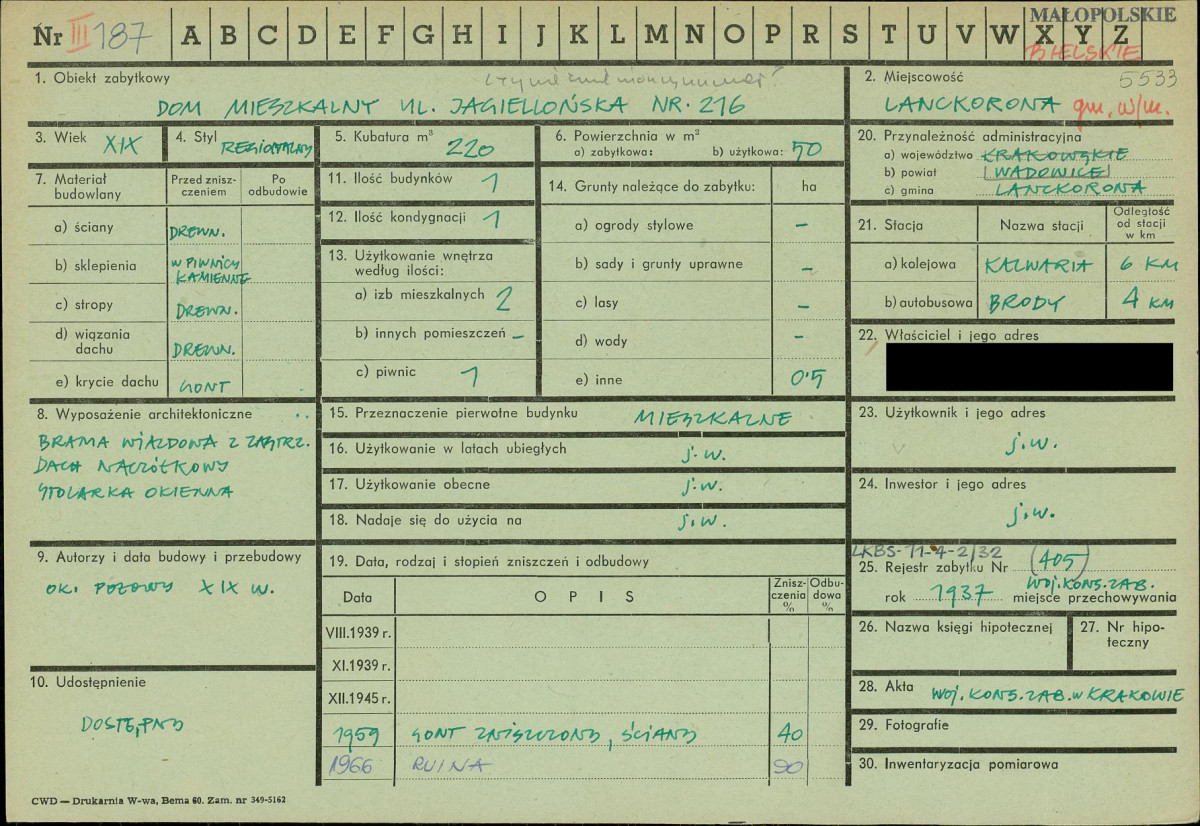 Nr III 187 A B C D E F G H I J K L M N O P R S T U V W X Y Z
MAŁOPOLSKIE
BIELSKIE
5533
1. Obiekt zabytkowy
DOM MIESZKALNY UL. JAGIELLOŃSKA NR. 216
2. Miejscowość
LANCKORONA gm. w/m.
3. Wiek XIX
4. Styl REGIONALNY
5. Kubatura m³ 220
6. Powierzchnia w m²
a) zabytkowa: b) użytkowa: 50
7. Materiał budowlany
Przed zniszczeniem
Po odbudowie
a) ściany DREWN.
b) sklepienia W PIWNICY KAMIENNE
c) stropy DREWN.
d) wiązania dachu DREWN.
e) krycie dachu GONT
8. Wyposażenie architektoniczne
BRAMA WJAZDOWA Z ZASTRZ.
DACH NACZÓŁKOWY
STOLARKA OKIENNA
9. Autorzy i data budowy i przebudowy
OK. POŁOWY XIX W.
10. Udostępnienie
DOSTĘPNY
11. Ilość budynków 1
12. Ilość kondygnacji 1
13. Użytkowanie wnętrza
według ilości:
a) izb mieszkalnych 2
b) innych pomieszczeń –
c) piwnic 1
14. Grunty należące do zabytku: ha
a) ogrody stylowe –
b) sady i grunty uprawne –
c) lasy –
d) wody –
e) inne 0·5
15. Przeznaczenie pierwotne budynku MIESZKALNE
16. Użytkowanie w latach ubiegłych j.w.
17. Użytkowanie obecne j.w.
18. Nadaje się do użycia na j.w.
19. Data, rodzaj i stopień zniszczeń i odbudowy
Data OPIS Zniszczenia % Odbudowa %
VIII.1939 r.
XI.1939 r.
XII.1945 r.
1959 GONT ZNISZCZONY, ŚCIANY 40
1966 RUINA 90
20. Przynależność administracyjna
a) województwo KRAKOWSKIE
b) powiat WADOWICE
c) gmina LANCKORONA
21. Stacja Nazwa stacji Odległość od stacji w km
a) kolejowa KALWARIA 6 KM
b) autobusowa BRODY 4 KM
22. Właściciel i jego adres
23. Użytkownik i jego adres
j.w.
24. Inwestor i jego adres
j.w.
LKBS-11-4-2/32
25. Rejestr zabytku Nr (405)
WOJ. KONS. ZAB.
rok 1937 miejsce przechowywania
26. Nazwa księgi hipotecznej
27. Nr hipoteczny
28. Akta WOJ. KONS. ZAB. W KRAKOWIE
29. Fotografie
30. Inwentaryzacja pomiarowa
CWD — Drukarnia W-wa, Bema 60. Zam. nr 349-5162